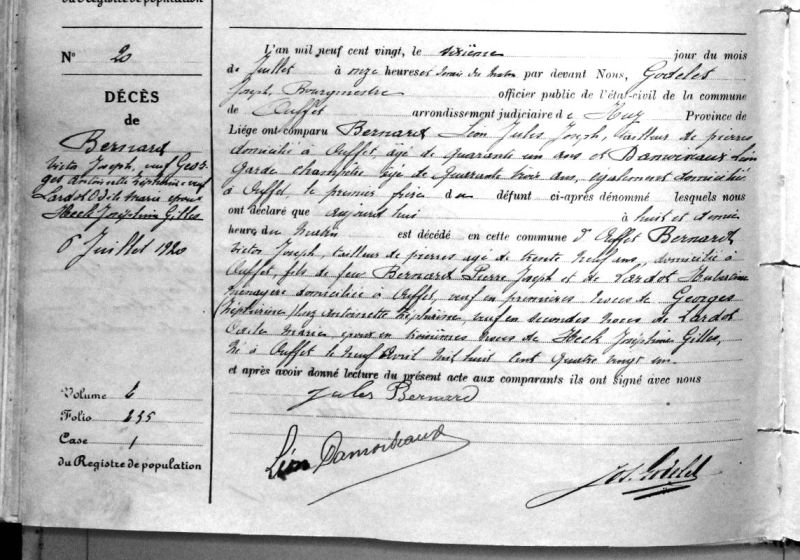 du Registre de population
N° 20
DÉCÈS
de
Bernard
Victor Joseph, veuf Geor-
ges Antoinette Zéphirine veuf
Lardot Odile Marie époux
Heck Joséphine Gilles
6 Juillet 1920
Volume 6
Folio 235
Case 1
du Registre de population
L'an mil neuf cent vingt, le sixième jour du mois
de Juillet à onze heures du matin par devant Nous, Godelet
Joseph Bourgmestre officier public de l'état-civil de la commune
de Ouffet arrondissement judiciaire de Huy Province de
Liége ont comparu Bernard Léon Jules Joseph, tailleur de pierres
domicilié à Ouffet, âgé de quarante un ans et Damoiseaux Léon
Garde champêtre âgé de quarante trois ans, également domicilié
à Ouffet, le premier frère du défunt ci-après dénommé lesquels nous
ont déclaré que aujourd'hui à huit et demie
heures du matin est décédé en cette commune d'Ouffet Bernard
Victor Joseph, tailleur de pierres âgé de trente neuf ans, domicilié à
Ouffet, fils de feu Bernard Pierre Joseph et de Lardot Hubertine
ménagère domiciliée à Ouffet, veuf en premières noces de Georges
Antoinette Zéphirine, veuf en secondes noces de Lardot
Odile Marie, époux en troisièmes noces de Heck Joséphine Gilles,
né à Ouffet le neuf Avril mil huit cent quatre vingt un
et après avoir donné lecture du présent acte aux comparants ils ont signé avec nous
Jules Bernard
Léon Damoiseaux
Jos. Godelet